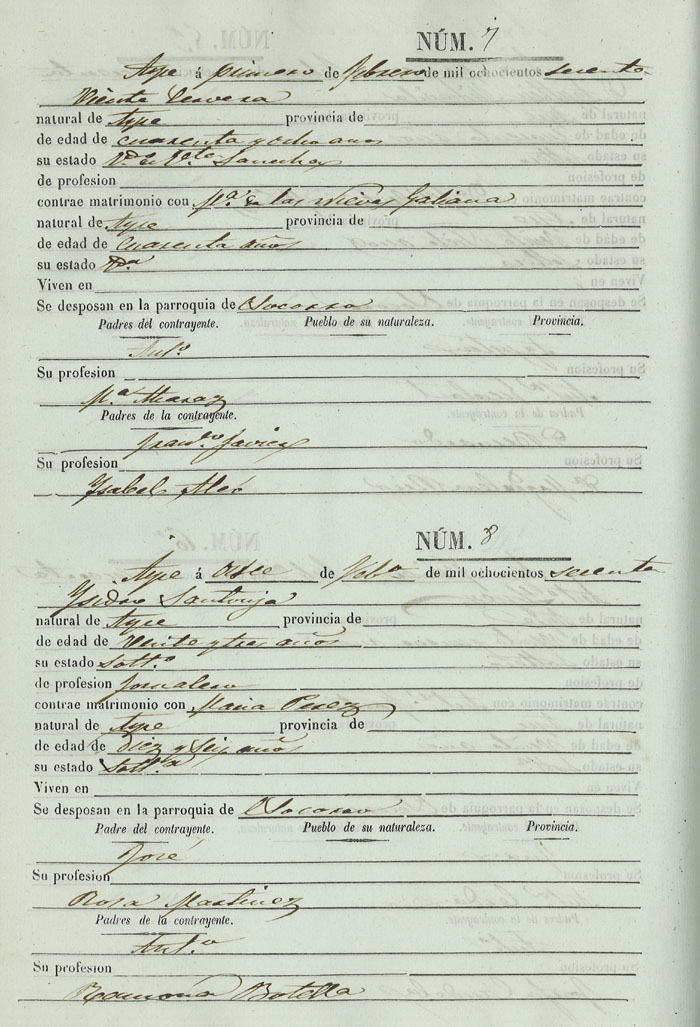 NÚM. 7
Aspe á primero de febrero de mil ochocientos sesenta
Vicente Cervera
natural de Aspe provincia de
de edad de cuarenta y ocho años
su estado V.do de V.te Sanchez
de profesion
contrae matrimonio con M.ª de las Nieves Galiana
natural de Aspe provincia de
de edad de cuarenta años
su estado V.da
Viven en
Se desposan en la parroquia de Socorro
Padres del contrayente. Pueblo de su naturaleza. Provincia.
Ant.o
Su profesion
M.ª
Padres de la contrayente.
Fran.co Javier
Su profesion
Ysabel
NÚM. 8
Aspe á once de Feb.o de mil ochocientos sesenta
Ysidro Santonja
natural de Aspe provincia de
de edad de veinte y tres años
su estado Solt.o
de profesion Jornalero
contrae matrimonio con Maria Perez
natural de Aspe provincia de
de edad de diez y seis años
su estado Solt.a
Viven en
Se desposan en la parroquia de Socorro
Padre del contrayente. Pueblo de su naturaleza. Provincia.
José
Su profesion
Rosa Martinez
Padres de la contrayente.
Ant.o
Su profesion
Ramona Botella